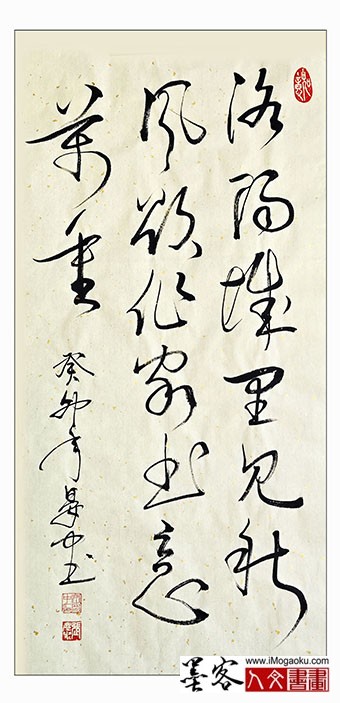 洛阳城里见秋
风欲作家书意
萬重
癸卯年
墨客
www.iMogaoku.com
人文書畫